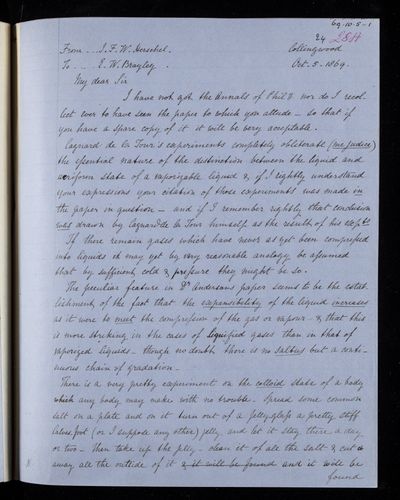 69.10.5-1
24 284
From .. J. F. W. Herschel. Collingwood
To .. E. W. Brayley. Oct. 5. 1869.
My dear Sir
I have not got the Annals of Phil y nor do I recol-
lect ever to have seen the paper to which you allude – so that if
you have a spare copy of it it will be very acceptable.
Cagnard de la Tour's experiments completely obliterate (me judice)
the essential nature of the distinction between the liquid and
aeriform state of a vaporizable liquid &, if I rightly understand
your expressions your citation of those experiments was made in
the paper in question – and if I remember rightly that conclusion
was drawn by Cagnard de la Tour himself as the result of his expts
If there remain gases which have never as yet been compressed
into liquids it may yet by very reasonable analogy be assumed
that by sufficient cold & pressure they might be so.
The peculiar feature in Dr Andrews's paper seems to be the estab-
lishment of the fact that the expansibility of the liquid increases
as it were to meet the compression of the gas or vapour – & that this
is more striking in the cases of liquefied gases than in that of
vaporized liquids – though no doubt there is no saltus but a conti-
nuous chain of gradation.
There is a very pretty experiment on the colloid state of a body
which any body may make with no trouble. Spread some common
salt on a plate and on it turn out of a jelly glass a pretty stiff
calves foot (or I suppose any other) jelly and let it stay there a day
or two – then take up the jelly – clean it of all the salt & cut
away all the outside of it & it will be found and it will be
found